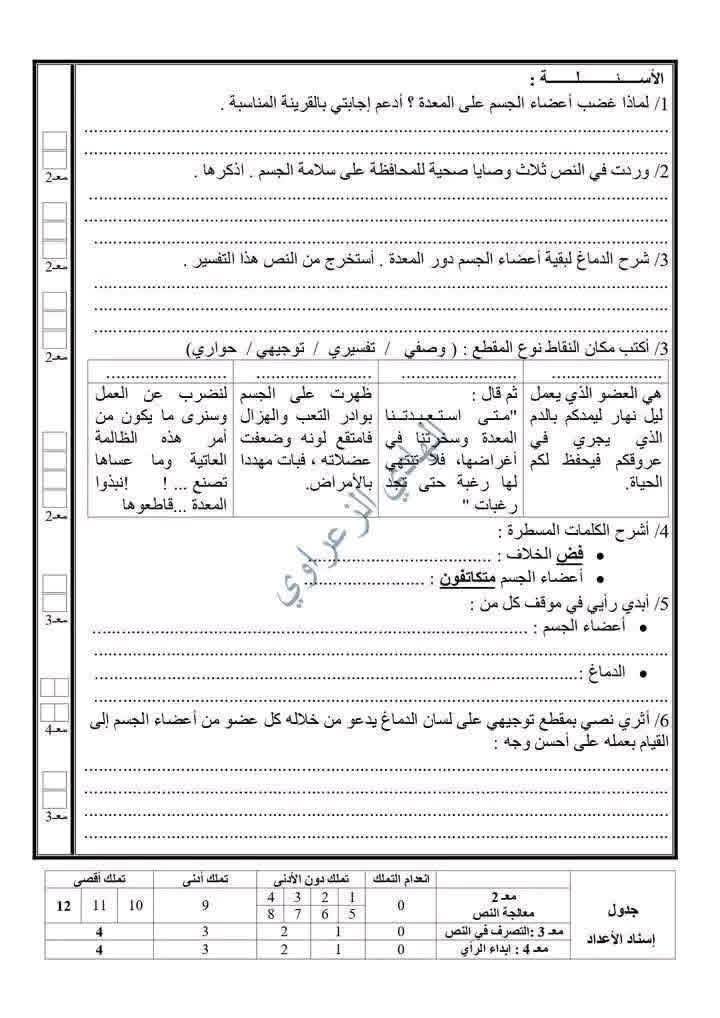 الأســـئـــلـــة :
1/ لماذا غضب أعضاء الجسم على المعدة ؟ أدعم إجابتي بالقرينة المناسبة .
معـ2
2/ وردت في النص ثلاث وصايا صحية للمحافظة على سلامة الجسم . اذكرها .
معـ2
3/ شرح الدماغ لبقية أعضاء الجسم دور المعدة . أستخرج من النص هذا التفسير .
معـ2
3/ أكتب مكان النقاط نوع المقطع : ( وصفي / تفسيري / توجيهي / حواري)
هي العضو الذي يعمل
ليل نهار ليمدكم بالدم
الذي يجري في
عروقكم فيحفظ لكم
الحياة.
ثم قال :
"متى استعبدتنا
المعدة وسخرتنا في
أغراضها، فلا تنتهي
لها رغبة حتى تجد
رغبات "
ظهرت على الجسم
بوادر التعب والهزال
فامتقع لونه وضعفت
عضلاته ، فبات مهددا
بالأمراض.
لنضرب عن العمل
وسنرى ما يكون من
أمر هذه الظالمة
العاتية وما عساها
تصنع ... ! !نبذوا
المعدة ...قاطعوها
معـ2
4/ أشرح الكلمات المسطرة :
• فض الخلاف :
• أعضاء الجسم متكاتفون :
معـ3
5/ أبدي رأيي في موقف كل من :
• أعضاء الجسم :
• الدماغ :
معـ4
6/ أثري نصي بمقطع توجيهي على لسان الدماغ يدعو من خلاله كل عضو من أعضاء الجسم إلى
القيام بعمله على أحسن وجه :
معـ3
الهادي الزعراوي
جدول
إسناد الأعداد
انعدام التملك
تملك دون الأدنى
تملك أدنى
تملك أقصى
معـ 2
معالجة النص
0
1 2 3 4
5 6 7 8
9
10 11 12
معـ 3 :التصرف في النص
0
1
2
3
4
معـ 4 : إبداء الرأي
0
1
2
3
4